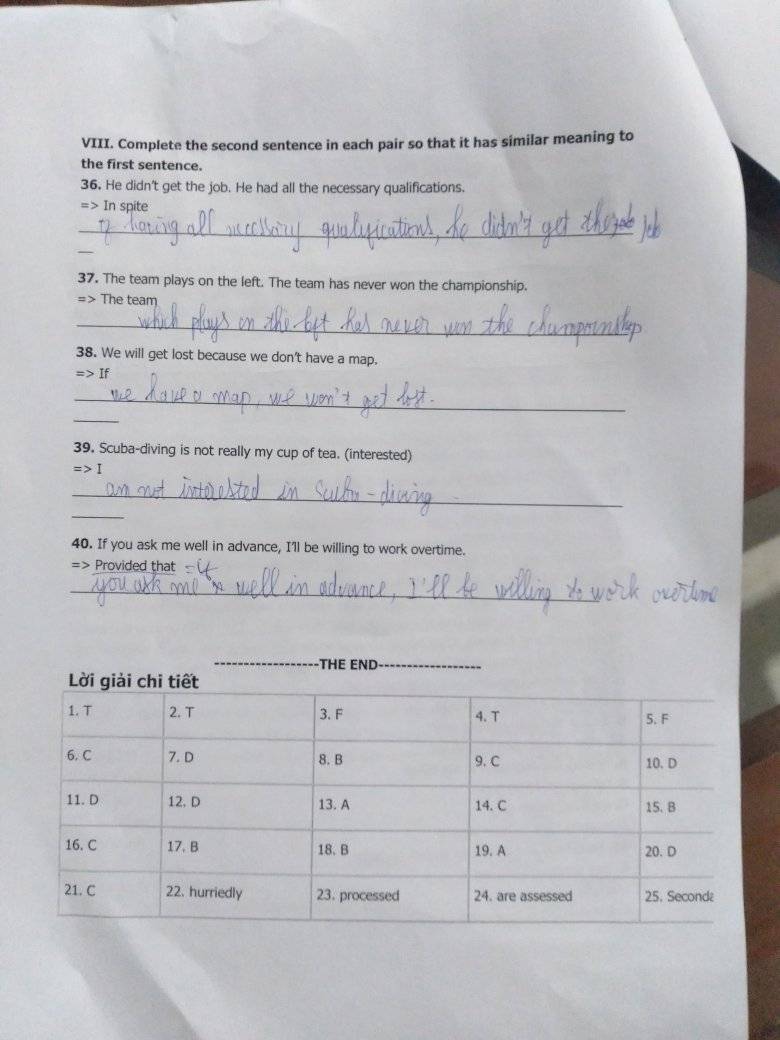 VIII. Complete the second sentence in each pair so that it has similar meaning to
the first sentence.
36. He didn't get the job. He had all the necessary qualifications.
=> In spite
of having all necessary qualifications, he didn't get the job
37. The team plays on the left. The team has never won the championship.
=> The team
which plays on the left has never won the championship
38. We will get lost because we don't have a map.
=> If
we have a map, we won't get lost.
39. Scuba-diving is not really my cup of tea. (interested)
=> I
am not interested in Scuba-diving
40. If you ask me well in advance, I'll be willing to work overtime.
=> Provided that = If
you ask me well in advance, I'll be willing to work overtime
-------------------THE END-------------------
Lời giải chi tiết
1. T 2. T 3. F 4. T 5. F
6. C 7. D 8. B 9. C 10. D
11. D 12. D 13. A 14. C 15. B
16. C 17. B 18. B 19. A 20. D
21. C 22. hurriedly 23. processed 24. are assessed 25. Seconda